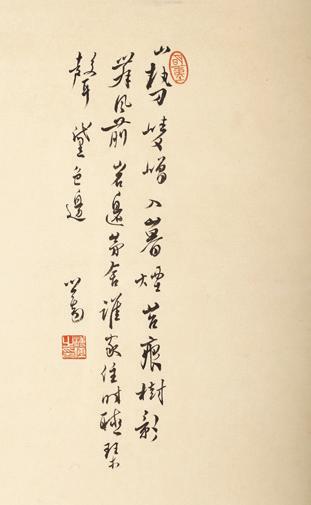 山勢崚嶒入暮煙苔痕樹影
舞風前岩邊茅舍誰家住時聽琴
聲黛色邊 心畬